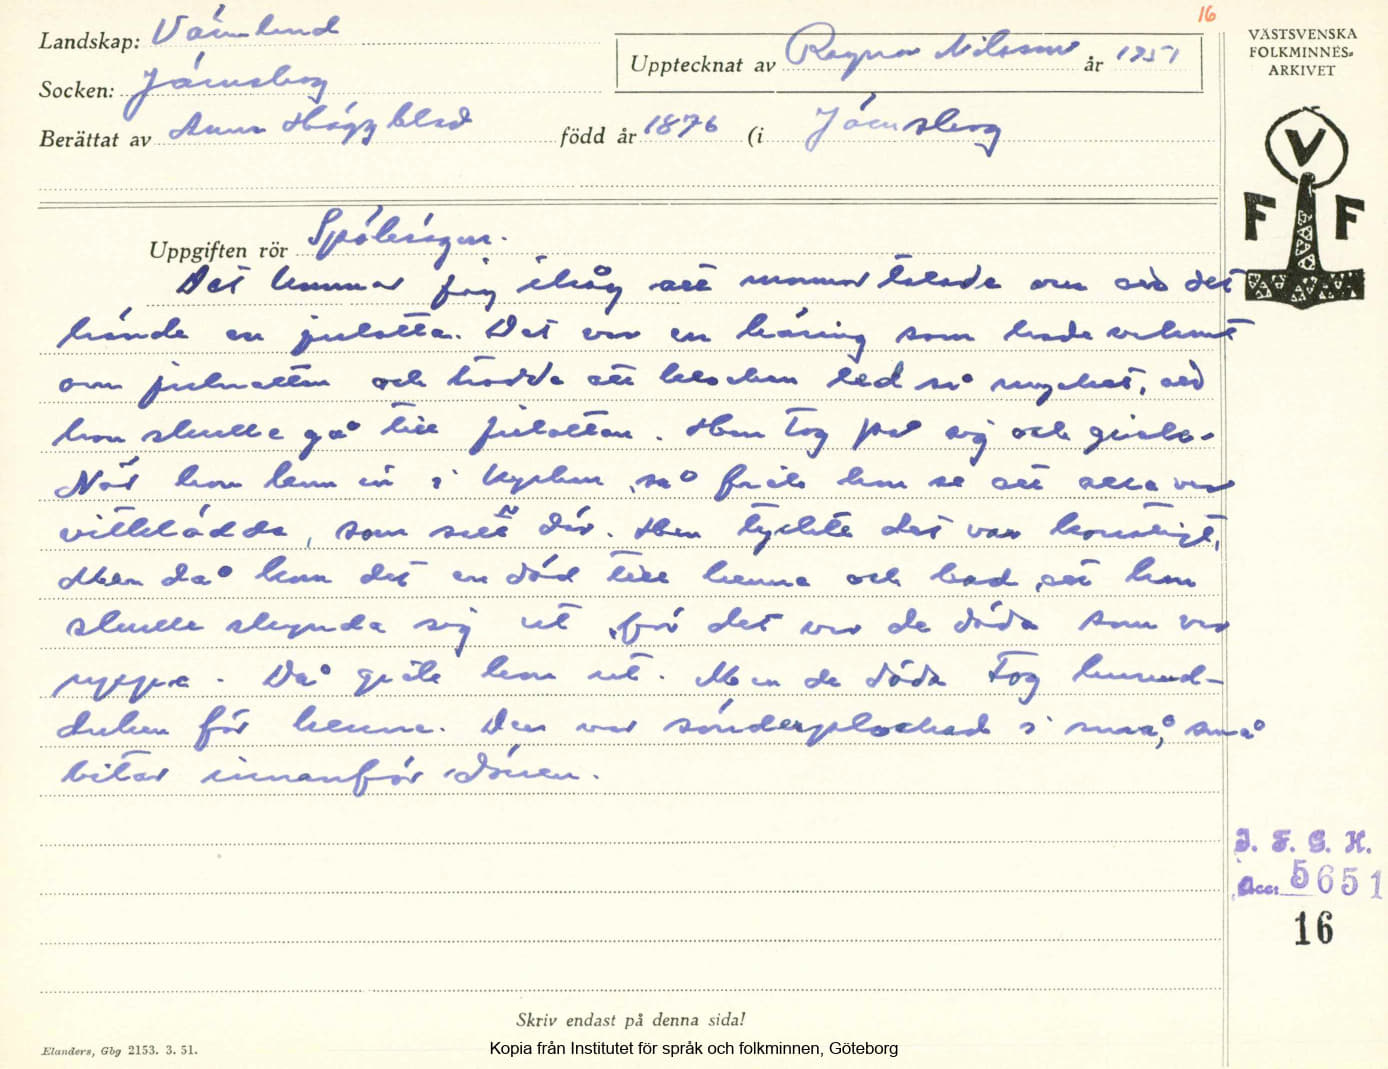 16
Landskap: Värmland
Upptecknat av Ragnar Nilsson år 1951
Socken: Järnskog
Berättat av Anna Häggblad född år 1876 (i Järnskog
VÄSTSVENSKA
FOLKMINNES-
ARKIVET
V
F F
Uppgiften rör Spöksägen.
Det kommer jag ihåg att mormor talade om vad det
hände en julotta. Det var en käring som hade vaknat
om julnatten och trodde att klockan led så mycket, att
hon skulle gå till julottan. Hon tog på sig och gick.
När hon kom in i kyrkan, så fick hon se att alla var
vitklädda, som satt där. Hon tyckte det var konstigt,
Men då kom det en död till henne och bad, att hon
skulle skynda sig ut, för det var de döda som var
uppe. Då gick hon ut. Men de döda tog huvud-
duken för henne. Den var sönderplockad i små, små
bitar innanför dörren.
I. F. G. H.
Acc: 5651
16
Skriv endast på denna sida!
Elanders, Gbg 2153. 3. 51.
Kopia från Institutet för språk och folkminnen, Göteborg